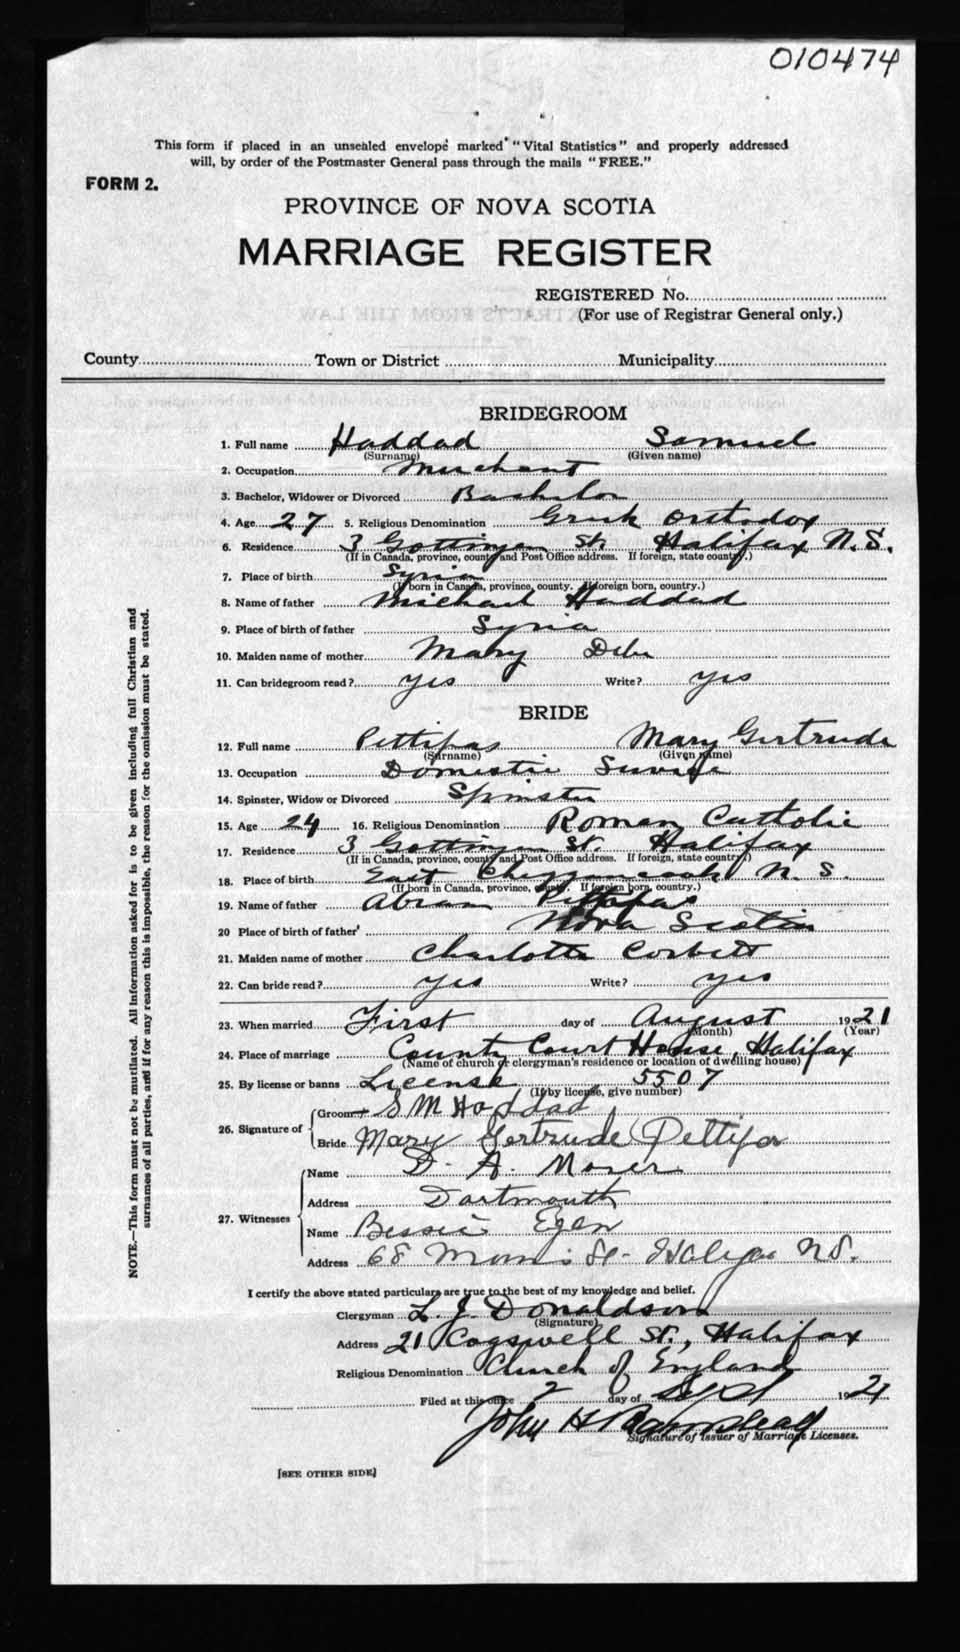 010474
This form if placed in an unsealed envelope marked "Vital Statistics" and properly addressed
will, by order of the Postmaster General pass through the mails "FREE."
FORM 2.
PROVINCE OF NOVA SCOTIA
MARRIAGE REGISTER
REGISTERED No.
(For use of Registrar General only.)
County Town or District Municipality
BRIDEGROOM
1. Full name Haddad Samuel
(Surname) (Given name)
2. Occupation Merchant
3. Bachelor, Widower or Divorced Bachelor
4. Age 27 5. Religious Denomination Greek Orthodox
6. Residence 3 Gottingen St. Halifax N.S.
(If in Canada, province, county and Post Office address. If foreign, state country.)
7. Place of birth Syria
(If born in Canada, province, county. If foreign born, country.)
8. Name of father Michael Haddad
9. Place of birth of father Syria
10. Maiden name of mother Mary
11. Can bridegroom read? yes Write? yes
BRIDE
12. Full name Pettipas Mary Gertrude
(Surname) (Given name)
13. Occupation Domestic Service
14. Spinster, Widow or Divorced Spinster
15. Age 24 16. Religious Denomination Roman Catholic
17. Residence 3 Gottingen St. Halifax
(If in Canada, province, county and Post Office address. If foreign, state country.)
18. Place of birth East Chezzetcook N.S.
(If born in Canada, province, county. If foreign born, country.)
19. Name of father Abram Pettipas
20 Place of birth of father Nova Scotia
21. Maiden name of mother Charlotte Corbett
22. Can bride read? yes Write? yes
23. When married First day of August 1921
(Month) (Year)
24. Place of marriage County Court House, Halifax
(Name of church or clergyman's residence or location of dwelling house)
25. By license or banns License 5507
(If by license, give number)
26. Signature of
Groom S M Haddad
Bride Mary Gertrude Pettipas
27. Witnesses
Name D. A. Moser
Address Dartmouth
Name Bessie Egan
Address 68 Morris St- Halifax NS.
I certify the above stated particulars are true to the best of my knowledge and belief.
Clergyman L. J. Donaldson
(Signature)
Address 21 Cogswell St., Halifax
Religious Denomination Church of England
Filed at this office 2 day of Sept 1921
John H
Signature of Issuer of Marriage Licenses.
[SEE OTHER SIDE]
NOTE.—This form must not be mutilated. All information asked for is to be given including full Christian and
surnames of all parties, and if for any reason this is impossible, the reason for the omission must be stated.